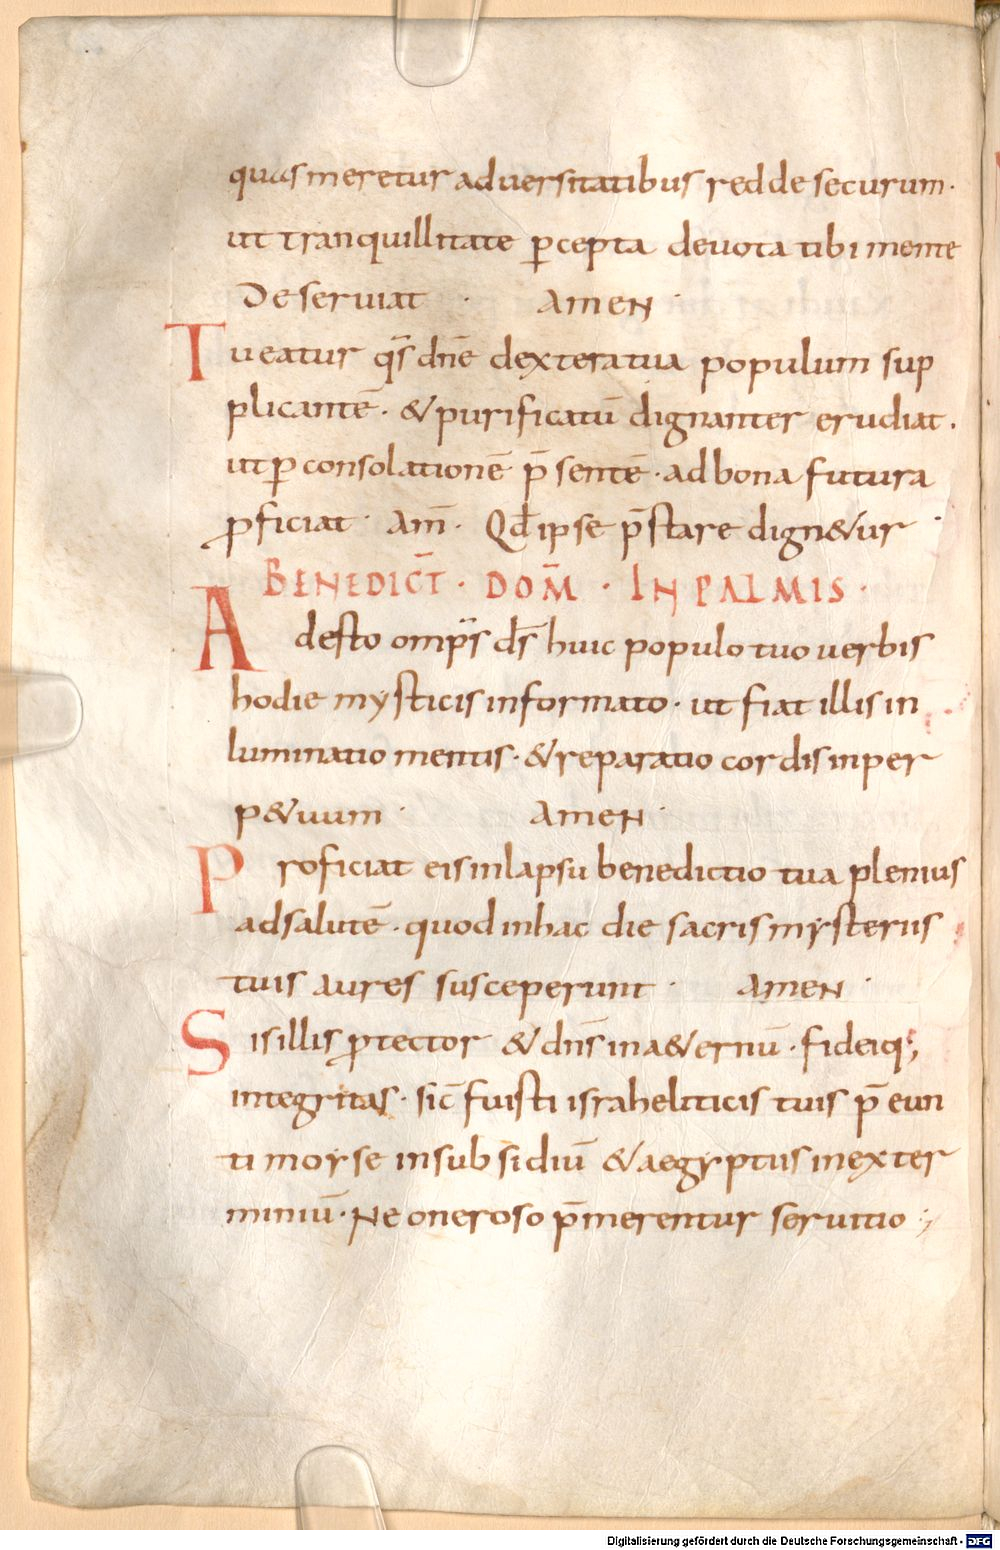 quas meretur adversitatibus redde securum·
ut tranquillitate p̲cepta devota tibi mente
Deserviat · AMEN ·
Tueatur qs̄ dn̄e dextera tua populum sup
plicantē· & purificatū dignanter erudiat·
ut p̲ consolationē p̄sentē· ad bona futura
ꝓficiat· AM̄· Qd̄ ipse p̄stare dign&ur ·
BENEDICT̄ · DOM̄ · IN PALMIS ·
Adesto omp̄s ds̄ huic populo tuo verbis
hodie mysticis informato· ut fiat illis in
luminatio mentis· & reparatio cordis inper
p&uum · AMEN ·
Proficiat eis inlapsu benedictio tua plenius
ad salutē· quod in hac die sacris mysteriis
tuis aures susceperunt · AMEN ·
Sis illis ꝓtector & dn̄s in a&ernū· fideiq;
integritas· sic̄ fuisti israheliticis tuis p̄eun
ti moyse in subsidiū & aegyptus in exter
miniū· Ne oneroso p̄merentur servitio ·,
Digitalisierung gefördert durch die Deutsche Forschungsgemeinschaft - DFG